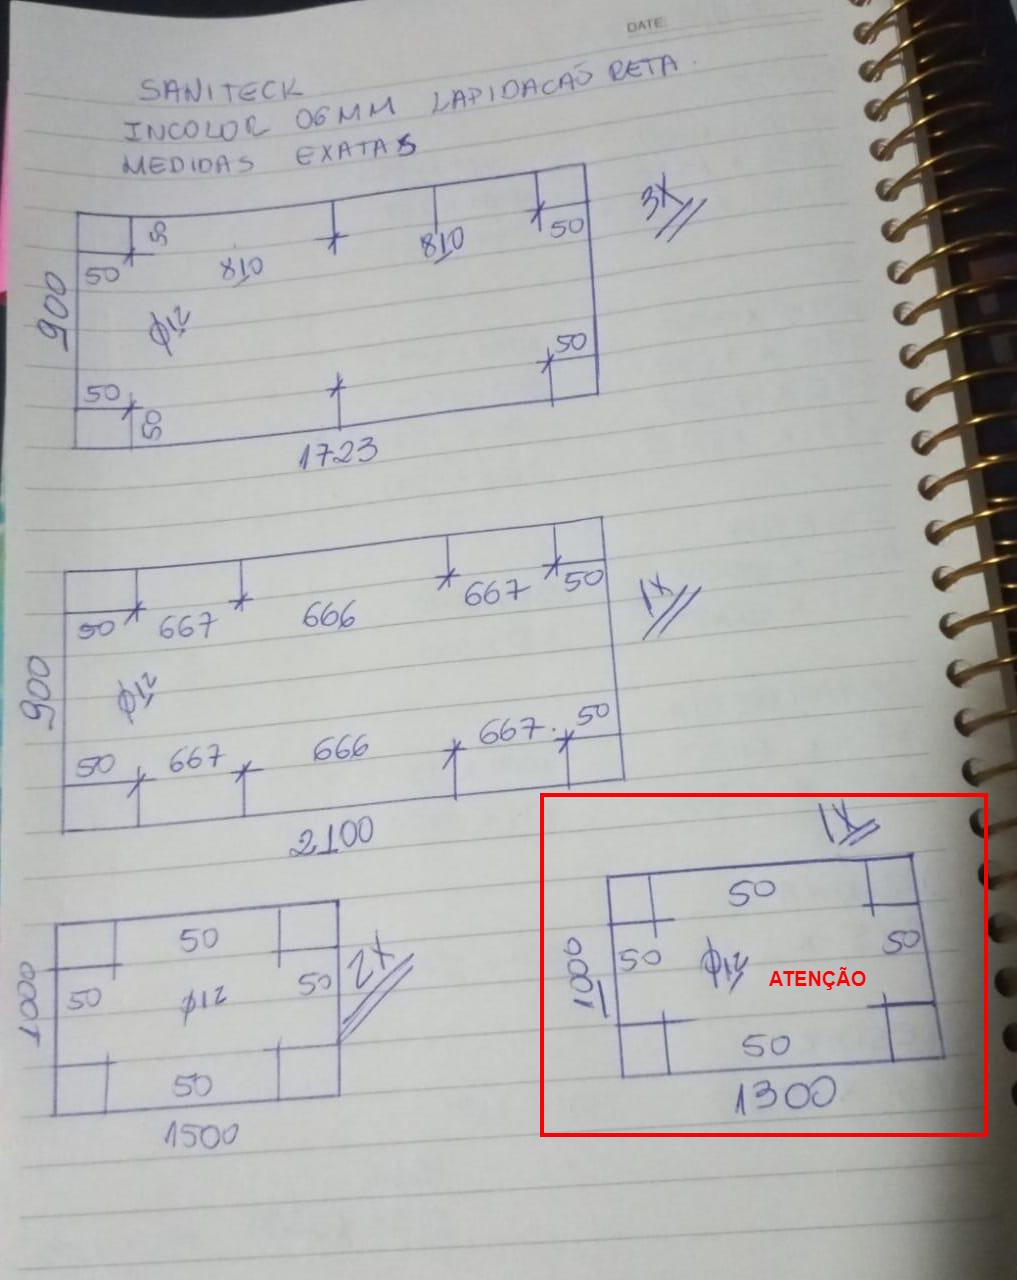 DATE
SANITECK
INCOLOR 06MM LAPIDACAÕ RETA.
MEDIDAS EXATAS
3X
50
50 810 810 50
900
Φ12
50 50
50
1723
1X
50 667 666 667 50
900
Φ12
50 667 666 667. 50
2100
1X
50
2X
1000 50 Φ12 50
50
1500
50
1000 50 Φ12 50
ATENÇÃO
50
1300